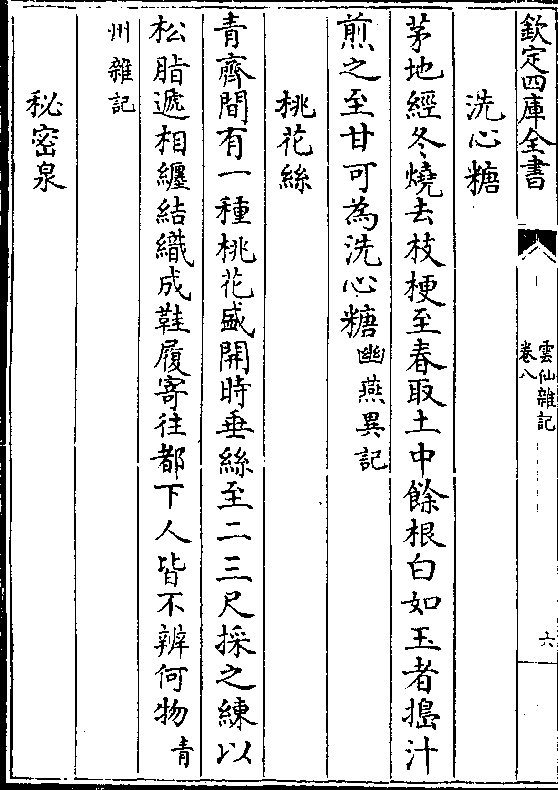 欽定四庫全書
雲仙雜記
卷八
六
洗心糖
茅地經冬燒去枝梗至春取土中餘根白如玉者搗汁
煎之至甘可為洗心糖幽燕異記
桃花絲
青齊間有一種桃花盛開時垂絲至二三尺採之練以
松脂遞相纏結織成鞋履寄往都下人皆不辨何物青
州雜記
秘密泉